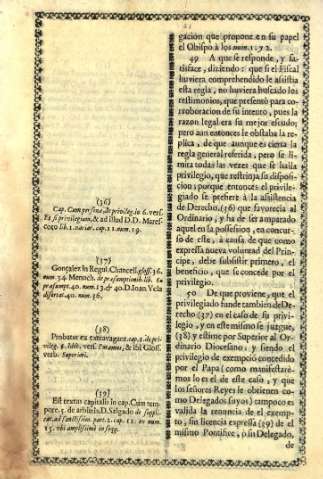 gacion que propone en su papel
el Obispo à los num. 1. y 2.
49 A que se responde, y sa-
tisface, diziendo: que si el Fiscal
huviera comprehendido le assistia
esta regla, no huviera buscado los
testimonios, que presentò para co-
rroboracion de su intento, pues la
razon legal era su mejor escudo;
pero aun entonces le obstaba la re-
plica, de que aunque es cierta la
regla general referida, pero se li-
mita todas las vezes que se halla
privilegio, que restrinja su disposi-
cion; porque entonces el privile-
giado se prefiere à la assistencia
de Derecho, (36) que favorecia al
Ordinario, y ha de ser amparado
aquel en la possession, en concur-
so de este, à causa de que como
expressa nueva voluntad del Prin-
cipe, debe subsistir primero, el
beneficio, que se concede por el
privilegio.
50 De que proviene, que el
privilegiado funde tambien de De-
recho (37) en el caso de su privi-
legio, y en este mismo se juzgue,
(38) y estime por Superior al Or-
dinario Diocesano, y siendo el
privilegio de exempcion concedido
por el Papa (como manifestarè-
mos lo es el de este caso, y que
los señores Reyes le obtienen co-
mo Delegados suyos) tampoco es
valida la renuncia de el exemp-
to, sin licencia expressa (39) de el
mismo Pontifice, ò su Delegado,
de
(36)
Cap. Cum persona, de privileg. in 6. vers.
Et si privilegium, & ad illud D.D. Mares-
coto lib. 1. variar. cap. 11. num. 29.
(37)
Gonçalez in Regul. Chancell. gloss. 36.
num. 34. Menoch. de præsumptionib. lib. 6.
præsumpt. 40. num. 13. & 40. D. Joan. Vela
dissertat. 40. num. 36.
(38)
Probatur ex extravagant. cap. 1. de pri-
vileg. §. Idcò, vers. Putamus, & ibi Gloss.
verb. Superiori.
(39)
Est textus capitalis in cap. Cum tem-
pore, 5. de arbitris. D. Salgado de suppli-
cat. ad Sanctissim. part. 2. cap. 12. ex num.
15. ubi amplissimè in seqq.